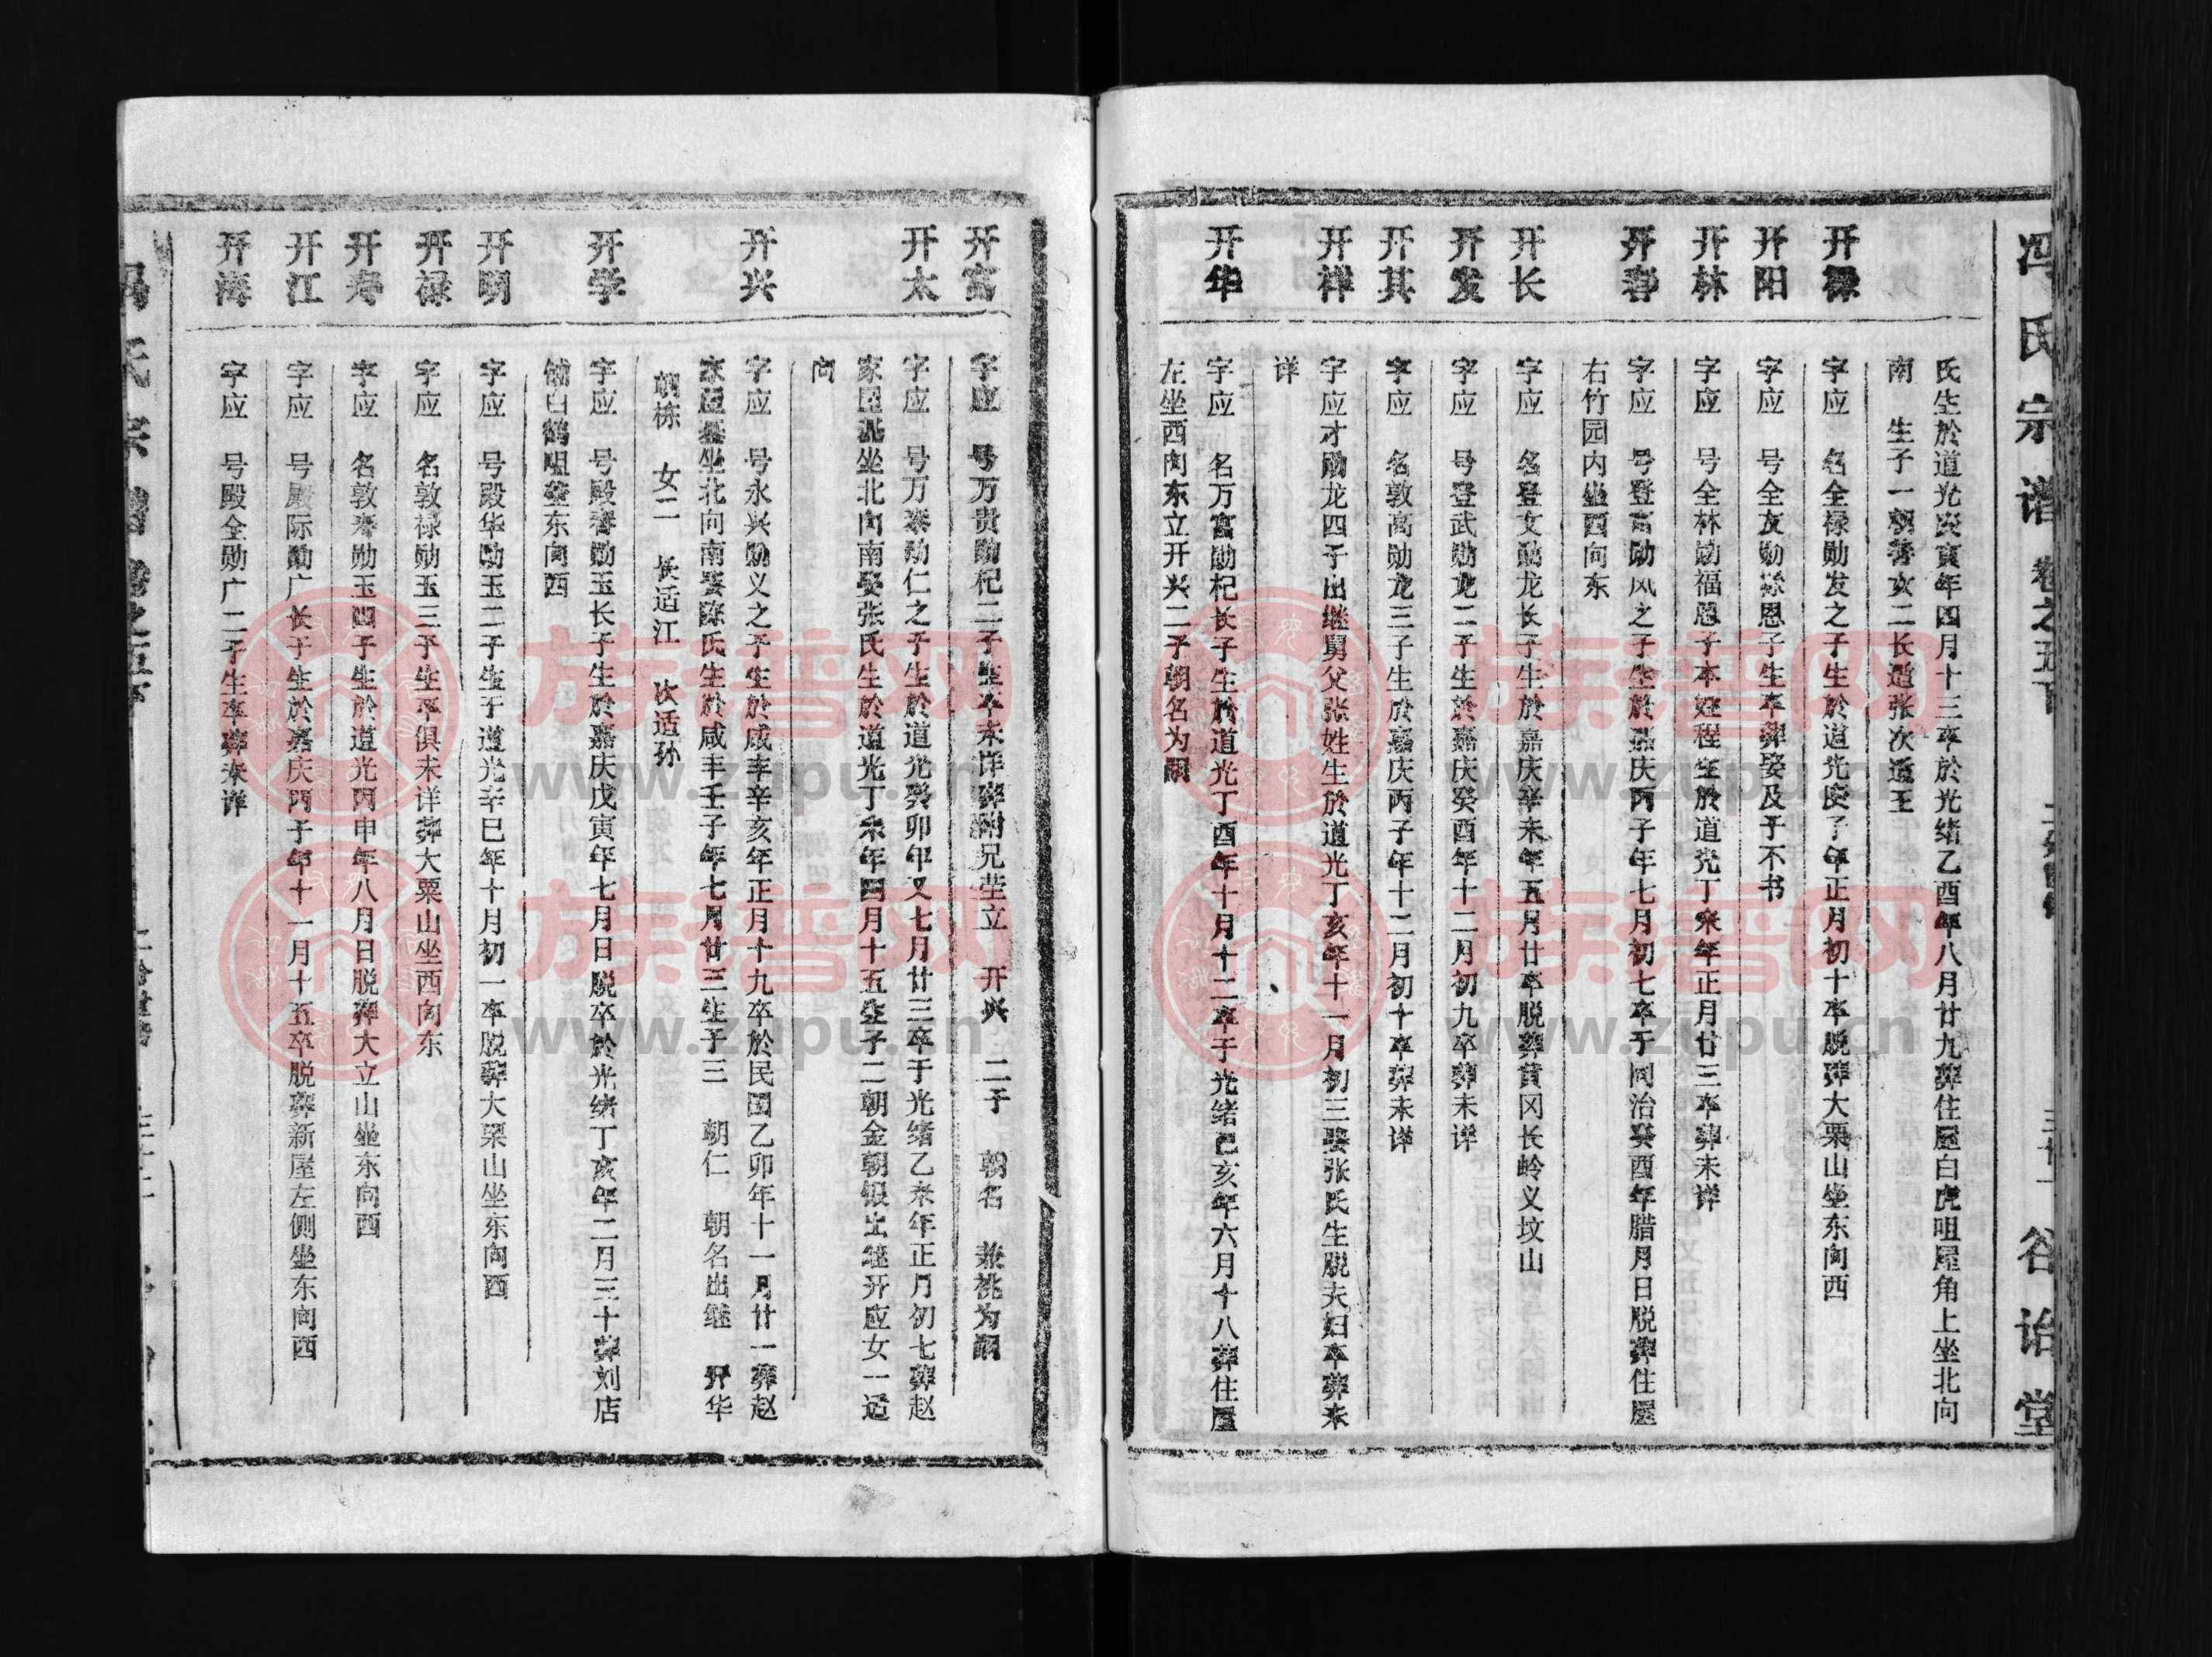 冯氏宗谱 卷之五下
谷诒堂
氏生於道光庚寅年四月十三卒於光绪乙酉年八月廿九葬住屋白虎咀屋角上坐北向
南 生子一朝 女二长适张次适王
开禄
字应 名全禄勋发之子生於道光庚子年正月初十卒脱葬大栗山坐东向西
开阳
字应 号全友勋 恩子生卒葬娶及子不书
开林
字应 号全林勋福恩子本姓程生於道光丁未年正月廿三卒葬未详
开春
字应 号登富勋风之子生於嘉庆丙子年七月初七卒于同治癸酉年腊月日脱葬住屋
右竹园内坐西向东
开长
字应 名登文勋龙长子生於嘉庆辛未年五月廿卒脱葬黄冈长岭义坟山
开发
字应 号登武勋龙二子生於嘉庆癸酉年十二月初九卒葬未详
开其
字应 名敦高勋龙三子生於嘉庆丙子年十二月初十卒葬未详
开祥
字应才勋龙四子出继舅父张姓生於道光丁亥年十一月初三娶张氏生脱夫妇卒葬未
详
开华
字应 名万富勋杞长子生於道光丁酉年十月十二卒于光绪己亥年六月十八葬住屋
左坐西向东立开兴二子朝名为嗣
开富
字应 号万贵勋杞二子生卒未详葬附兄茔立 开兴 二子 朝名 兼祧为嗣
开太
字应 号万泰勋仁之子生於道光癸卯年又七月廿三卒于光绪乙未年正月初七葬赵
家屋 坐北向南娶张氏生於道光丁未年四月十五生子二朝金朝银出继开应女一适
向
开兴
字应 号永兴勋义之子生於咸丰辛亥年正月十九卒於民国乙卯年十一月廿一葬赵
家屋 坐北向南娶陈氏生於咸丰壬子年七月廿三生子三 朝仁 朝名出继 开华
朝栋 女二 长适江 次适孙
开学
字应 号殿春勋玉长子生於嘉庆戊寅年七月日脱卒於光绪丁亥年二月三十葬刘店
铺白鹤咀茔东向西
开明
字应 号殿华勋玉二子生于道光辛巳年十月初一卒脱葬大栗山坐东向西
开禄
字应 名敦禄勋玉三子生卒俱未详葬大栗山坐西向东
开寿
字应 名敦寿勋玉四子生於道光丙申年八月日脱葬大立山坐东向西
开江
字应 号殿际勋广长子生於嘉庆丙子年十一月十五卒脱葬新屋左侧坐东向西
开海
字应 号殿全勋广二子生卒葬未详
冯氏宗谱 卷之五下
族谱网
www.zupu.cn
族谱网
www.zupu.cn
族谱网
www.zupu.cn
族谱网
www.zupu.cn